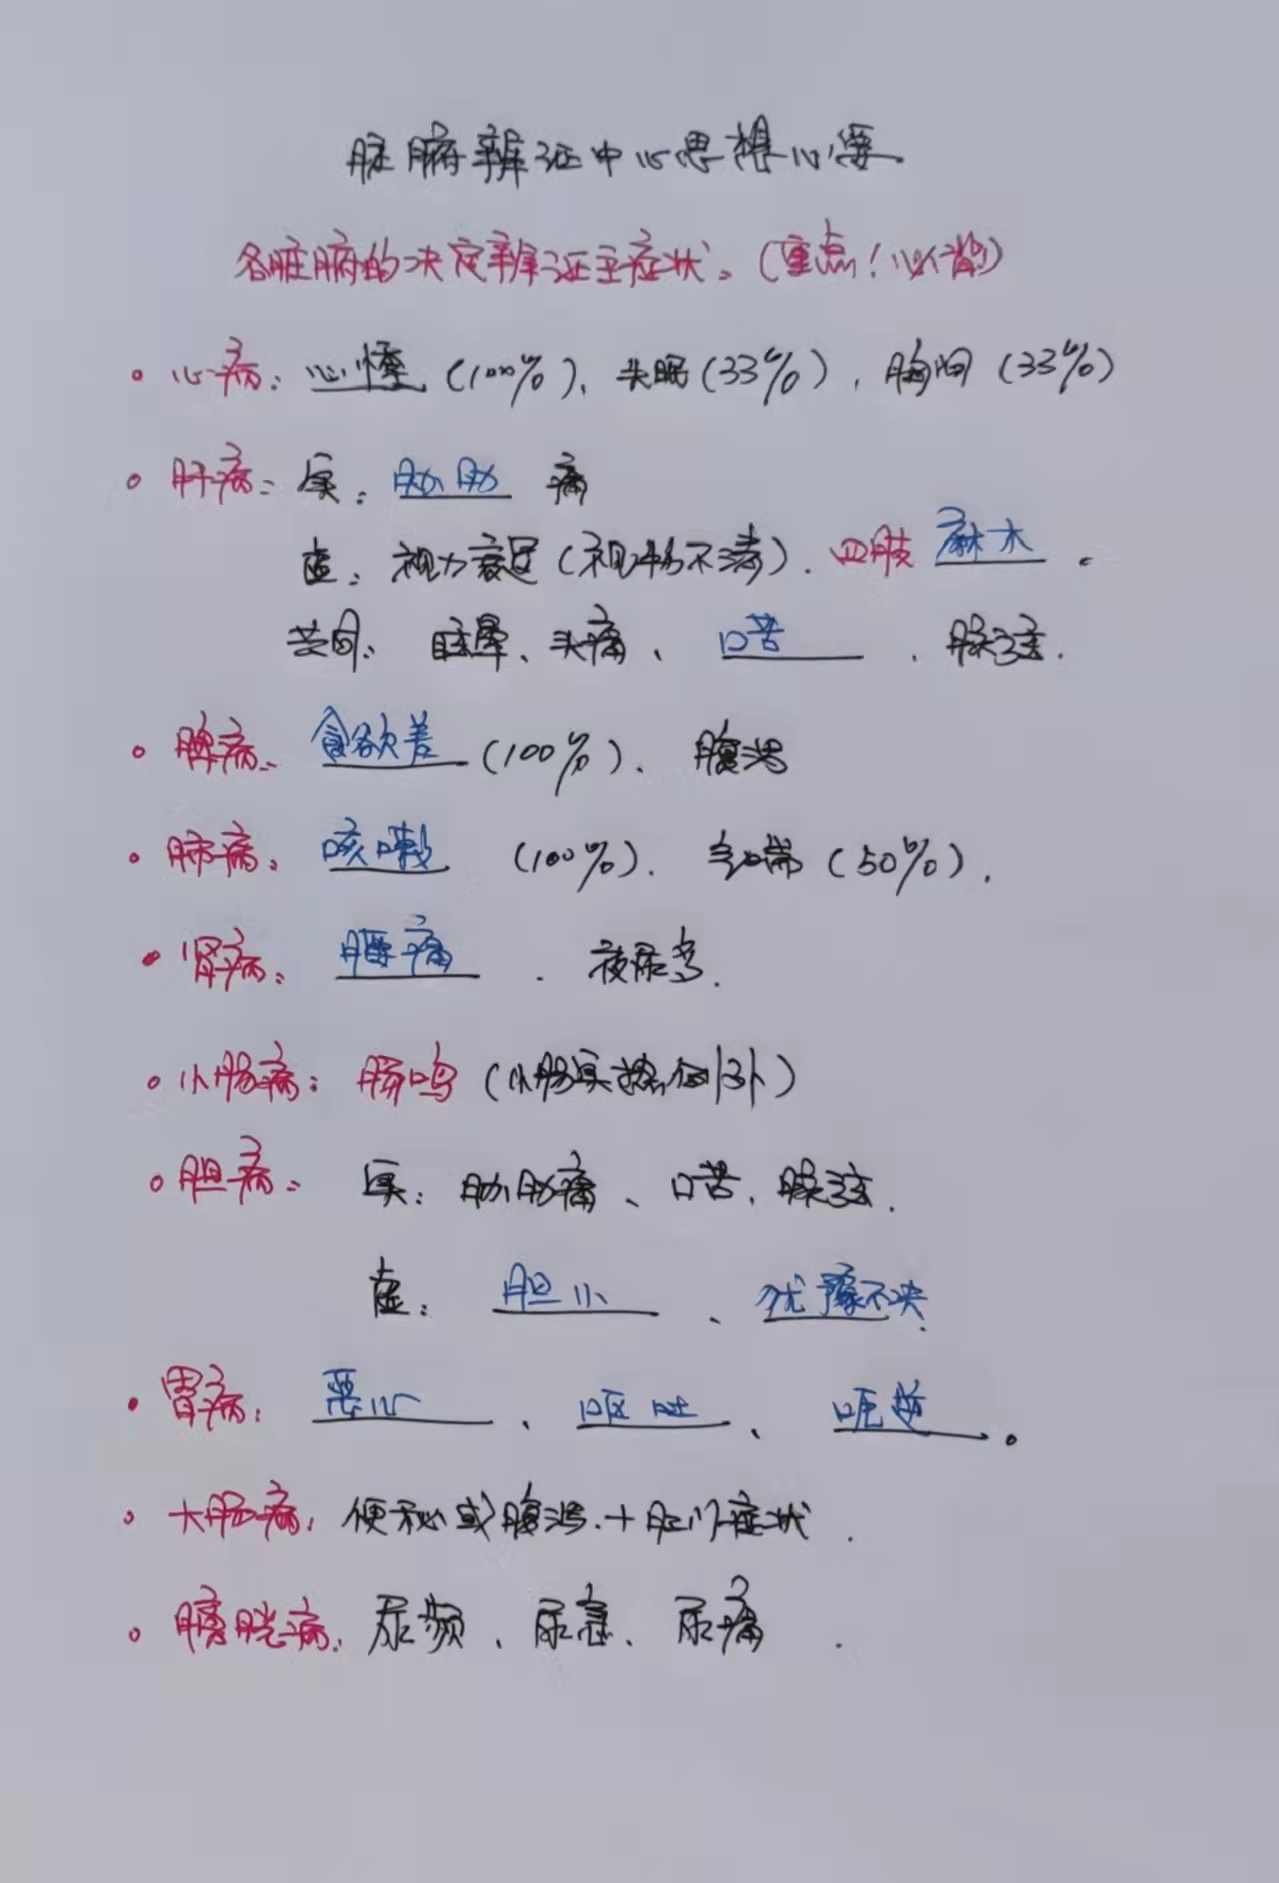 脏腑辨证中心思想心要
各脏腑的决定辨证主症状。(重点!必背)
心病:心悸(100%)、失眠(33%),胸闷(33%)
肝病:实:胁肋痛
虚:视力衰退(视物不清).四肢麻木。
共同:眩晕、头痛、口苦.脉弦.
脾病:食欲差(100%).腹泻
肺病:咳嗽(100%).气喘(50%).
肾病:腰痛.夜尿多.
小肠病:肠鸣(小肠实热例外)
胆病:实:胁肋痛、口苦.脉弦.
虚:胆小、犹豫不决.
胃病:恶心、呕吐、呃逆。
大肠病:便秘或腹泻.+肛门症状.
膀胱病:尿频、尿急、尿痛.